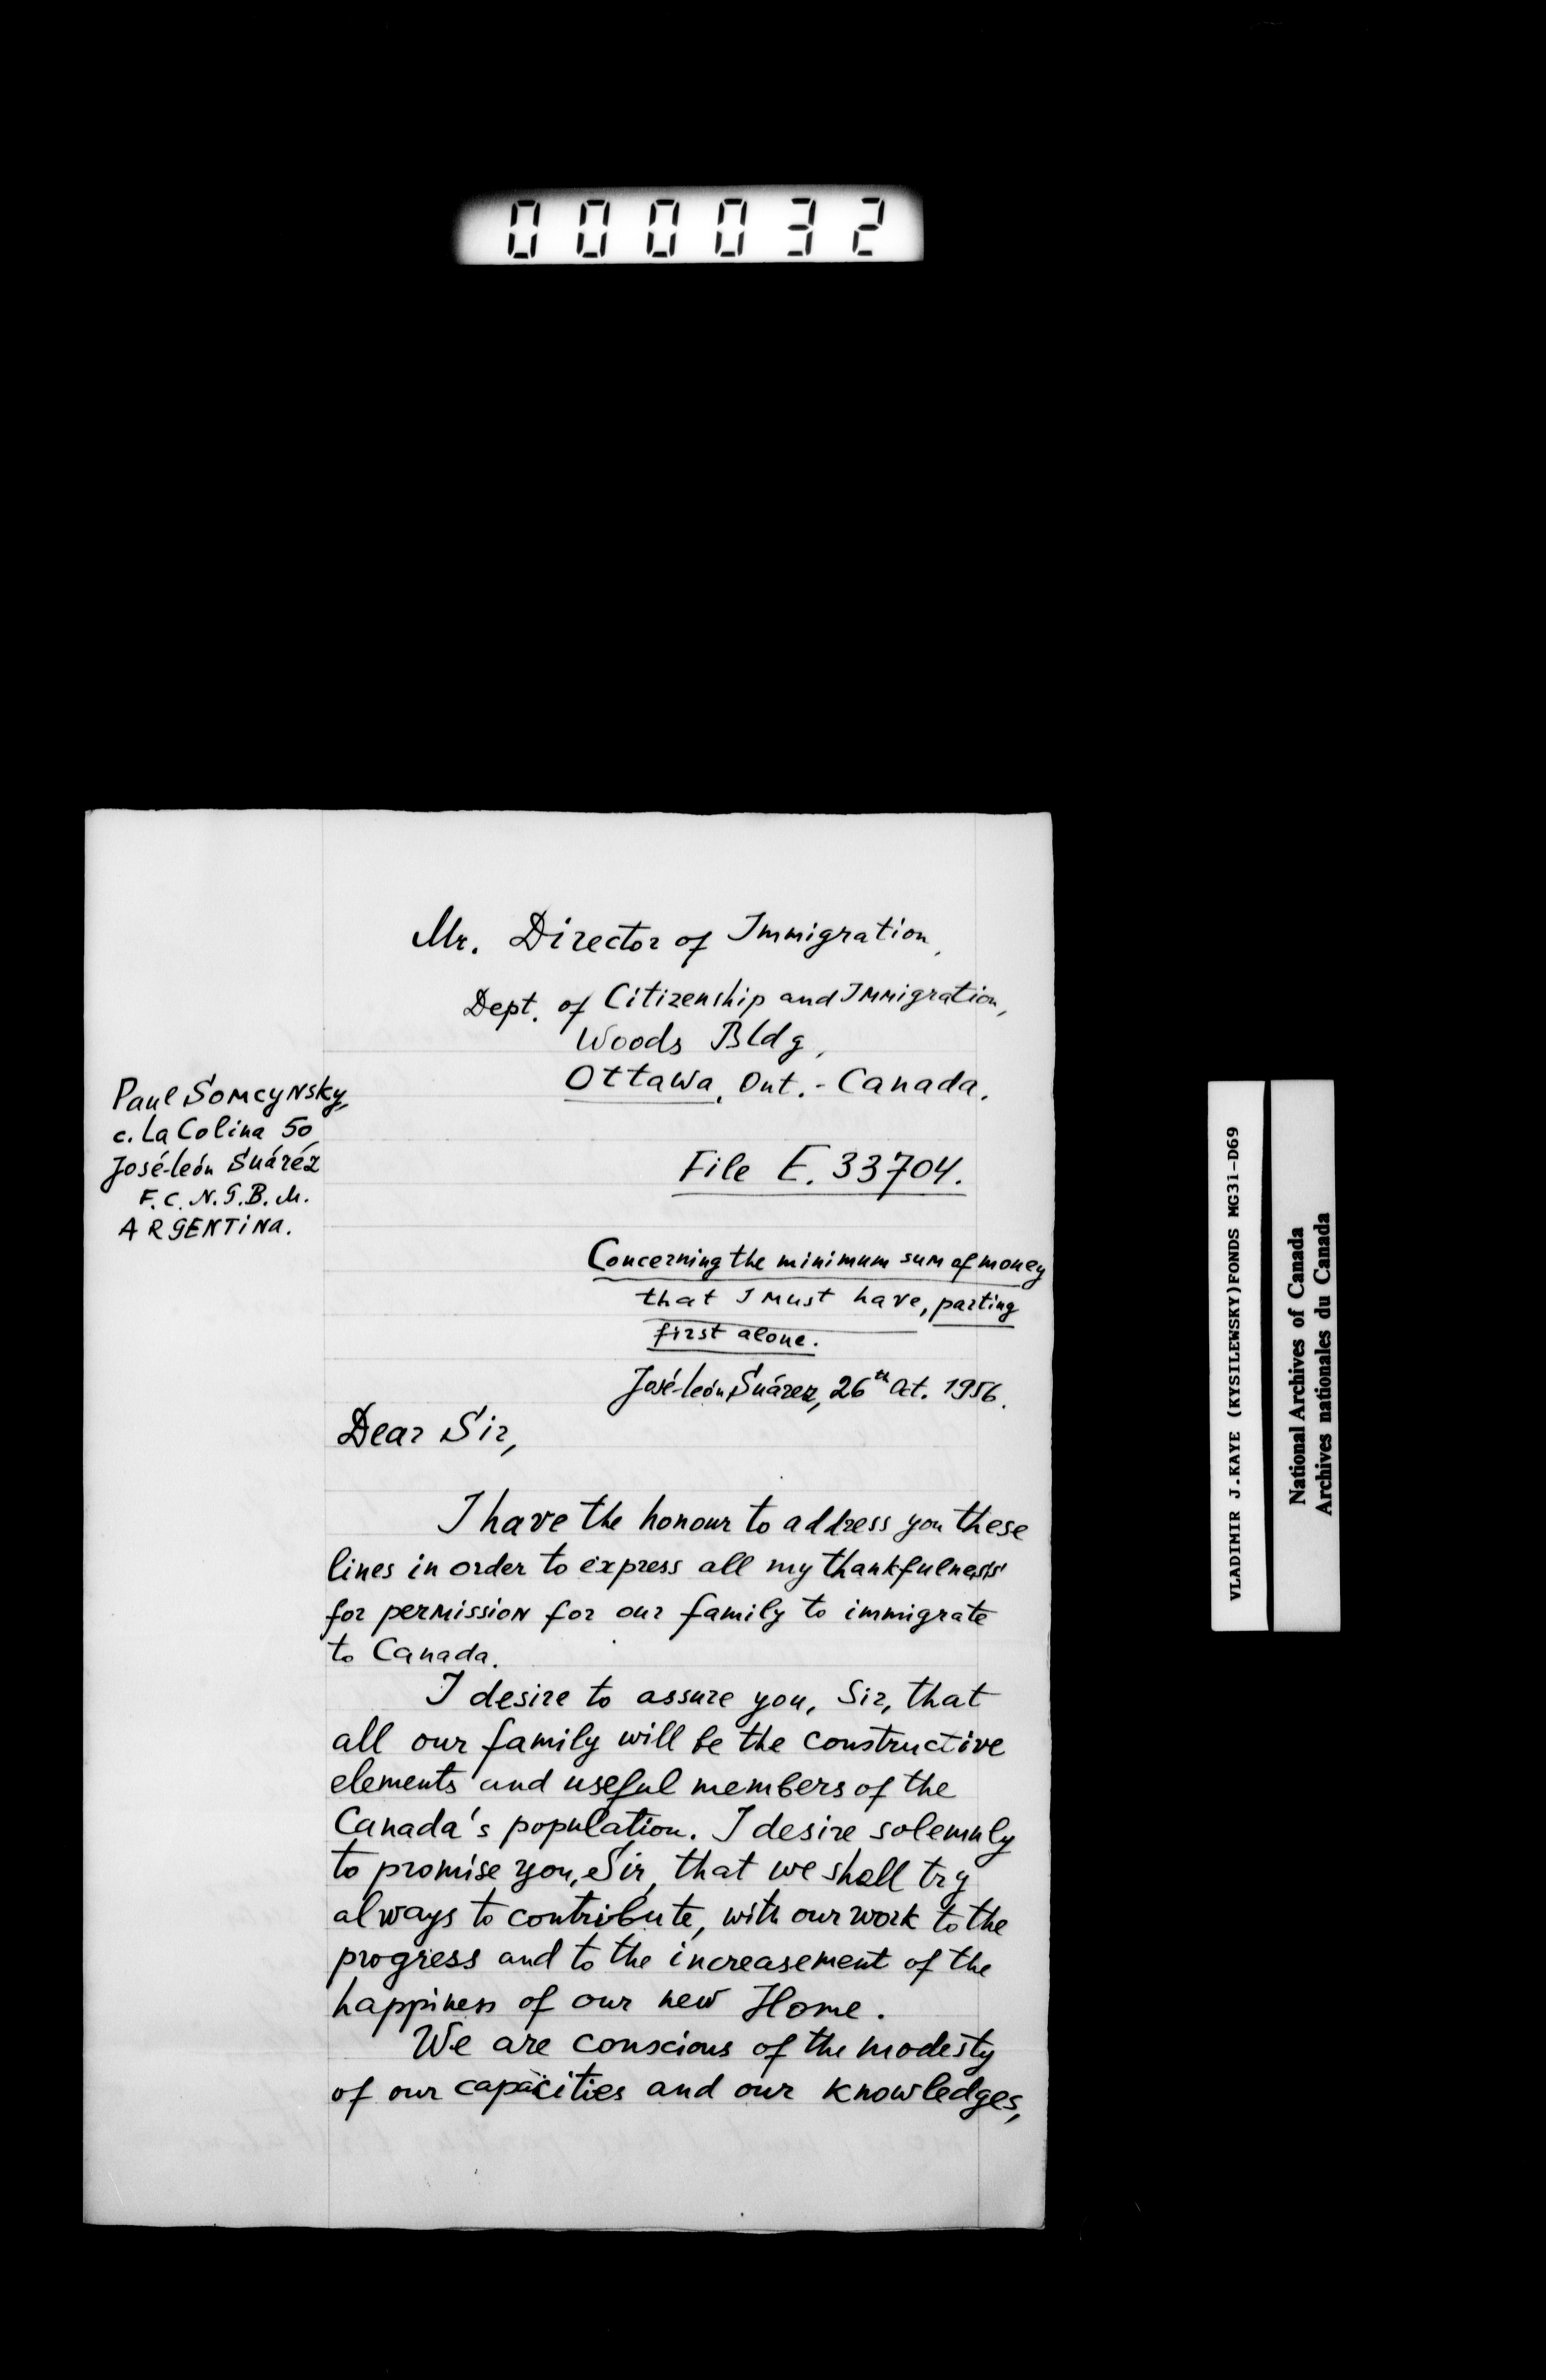 000032
Mr. Director of Immigration,
Dept. of Citizenship and Immigration,
Woods Bldg,
Ottawa, Ont. - Canada.
Paul Somcynsky,
c. La Colina 50
José-león Suáréz
F. C. N. G. B. M.
ARGENTINA.
File E. 33704.
Concerning the minimum sum of money
that I must have, parting
first alone.
José-león Suárez, 26th Oct. 1956.
Dear Sir,
I have the honour to address you these
lines in order to express all my thankfulness
for permission for our family to immigrate
to Canada.
I desire to assure you, Sir, that
all our family will be the constructive
elements and useful members of the
Canada's population. I desire solemnly
to promise you, Sir, that we shall try
always to contribute, with our work to the
progress and to the increasement of the
happiness of our new Home.
We are conscious of the modesty
of our capacities and our knowledges,
VLADIMIR J.KAYE (KYSILEWSKY)FONDS MG31-D69
National Archives of Canada
Archives nationales du Canada